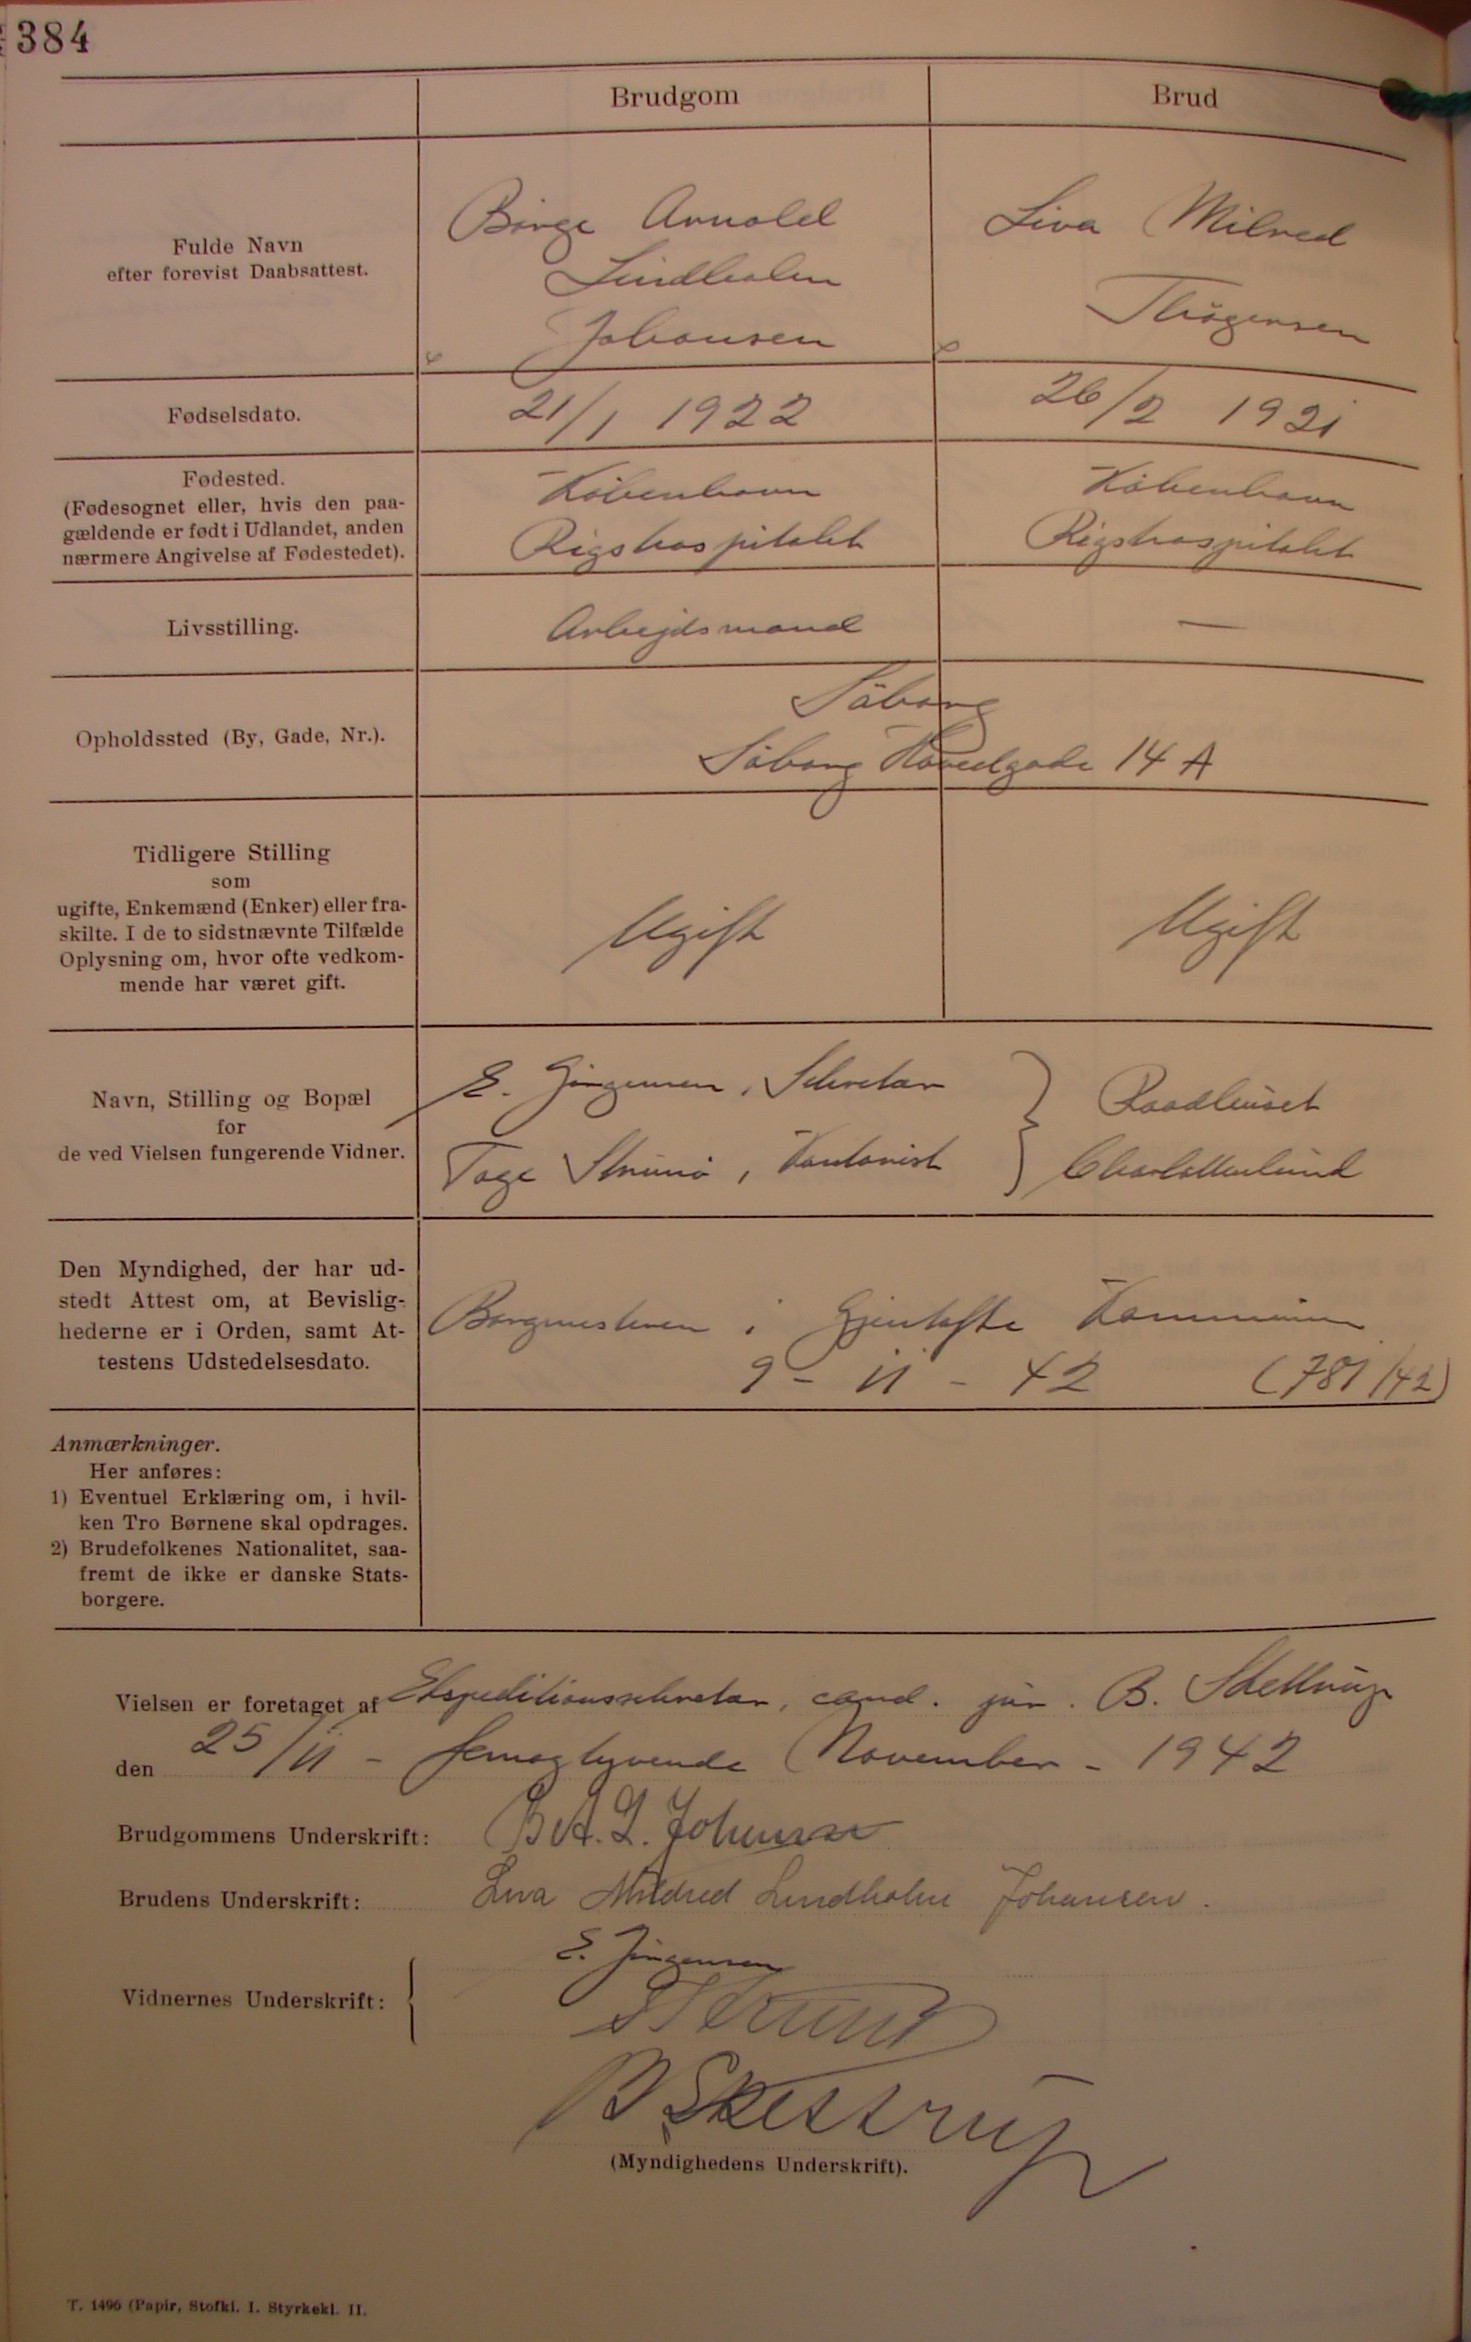 384
Brudgom
Brud
Fulde Navn
efter forevist Daabsattest.
Börge Arnold
Lindholm
Johansen
Liva Milred
Thögersen
Fødselsdato.
21/1 1922
26/2 1921
Fødested.
(Fødesognet eller, hvis den paa-
gældende er født i Udlandet, anden
nærmere Angivelse af Fødestedet).
København
Rigshospitalet
København
Rigshospitalet
Livsstilling.
Arbejdsmand
—
Opholdssted (By, Gade, Nr.).
Söborg
Söborg Hovedgade 14 A
Tidligere Stilling
som
ugifte, Enkemænd (Enker) eller fra-
skilte. I de to sidstnævnte Tilfælde
Oplysning om, hvor ofte vedkom-
mende har været gift.
Ugift
Ugift
Navn, Stilling og Bopæl
for
de ved Vielsen fungerende Vidner.
E. Jörgensen, Sekretær
Tage Strunö, Kontorist
Raadhuset
Charlottenlund
Den Myndighed, der har ud-
stedt Attest om, at Bevislig-
hederne er i Orden, samt At-
testens Udstedelsesdato.
Borgmesteren i Gjentofte Kommune
9 - 11 - 42 (781/42)
Anmærkninger.
Her anføres:
1) Eventuel Erklæring om, i hvil-
ken Tro Børnene skal opdrages.
2) Brudefolkenes Nationalitet, saa-
fremt de ikke er danske Stats-
borgere.
Vielsen er foretaget af Ekspeditionssekretær, cand. jur. B. Skettrup
den 25/11 - femogtyvende November - 1942
Brudgommens Underskrift: B. A. L. Johansen
Brudens Underskrift: Liva Mildred Lindholm Johansen.
Vidnernes Underskrift:
E. Jörgensen
B Skettrup
(Myndighedens Underskrift).
T. 1496 (Papir, Stofkl. I. Styrkekl. II.